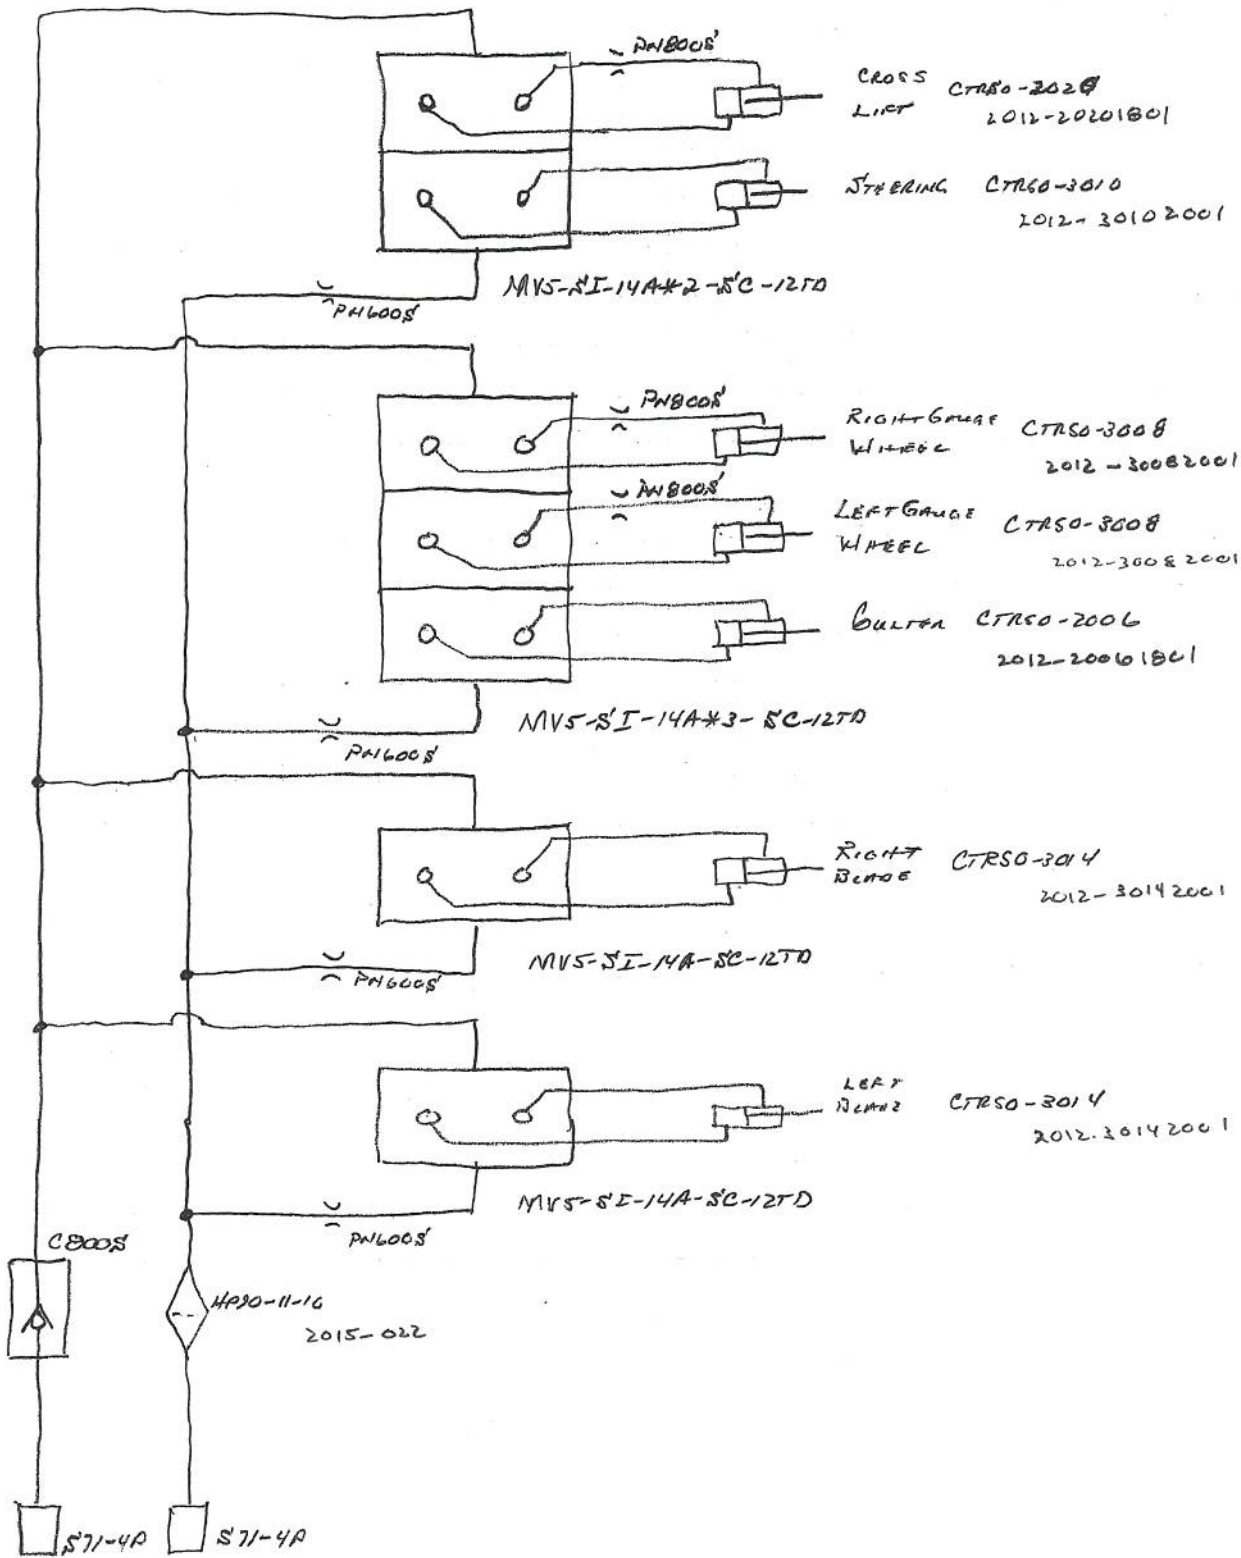 PN800S
CROSS CTR50-2020
LIFT 2012-20201801
STEERING CTR50-3010
2012-30102001
MV5-SI-14A*2-SC-12TD
PN600S
PN800S
RIGHT GAUGE CTR50-3008
WHEEL 2012-30082001
PN800S
LEFT GAUGE CTR50-3008
WHEEL 2012-30082001
CTR50-2006
2012-20061801
MV5-SI-14A*3-SC-12TD
PN600S
RIGHT CTR50-3014
BLADE 2012-30142001
MV5-SI-14A-SC-12TD
PN600S
LEFT CTR50-3014
BLADE 2012.30142001
MV5-SI-14A-SC-12TD
PN600S
C800S
2015-022
S71-4P S71-4P